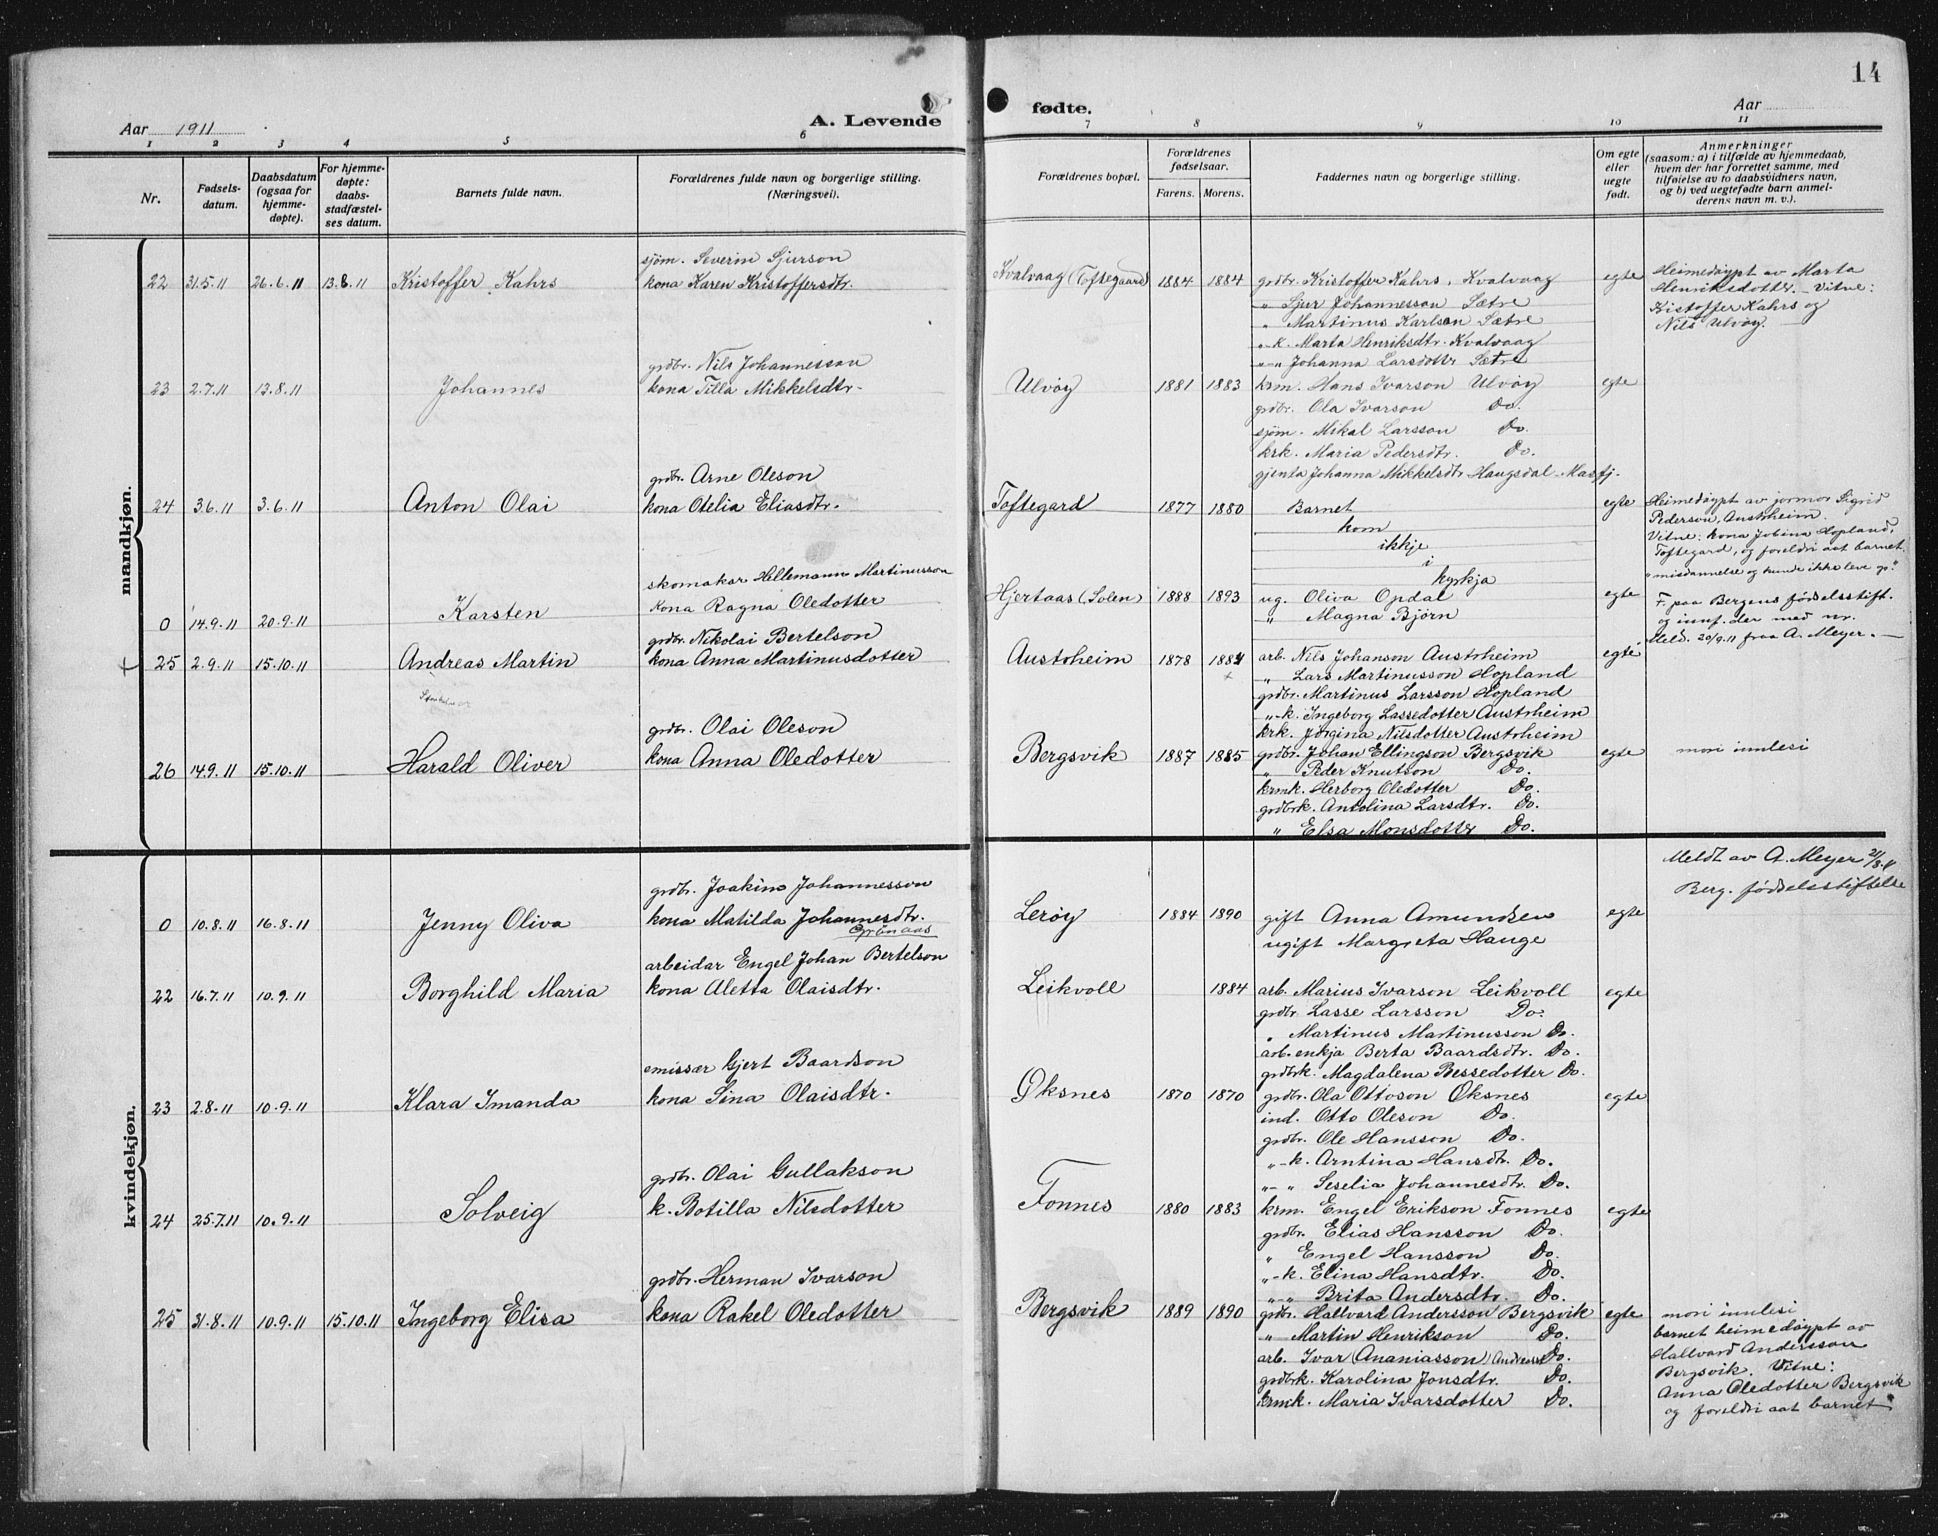 14
Aar 1911
A. Levende fødte.
Aar
1 2 3 4 5 6 7 8 9 10 11
Nr.
Fødsels-
datum.
Daabsdatum
(ogsaa for
hjemme-
døpte).
For hjemme-
døpte:
daabs-
stadfæstel-
ses datum.
Barnets fulde navn.
Forældrenes fulde navn og borgerlige stilling.
(Næringsvei).
Forældrenes bopæl.
Forældrenes
fødselsaar.
Farens. Morens.
Faddernes navn og borgerlige stilling.
Om egte
eller
uegte
født.
Anmerkninger
(saasom: a) i tilfælde av hjemmedaab,
hvem der har forrettet samme, med
tilføielse av to daabsvidners navn,
og b) ved uegtefødte barn anmel-
derens navn m. v.).
mandkjøn.
sjøm. Severin Sjurson
22 31.5.11 26.6.11 13.8.11 Kristoffer Kahrs kona Karen Kristoffersdtr.
Kvalvaag (Toftegaard) 1884 1884 grdbr. Kristoffer Kahrs, Kvalvaag egte
" Sjur Johannesson Sætre
" Martinus Karlson Sætre
"-k. Marta Henriksdtr. Kvalvaag
"-" Johanna Larsdotter Sætre
Heimedøypt av Marta
Henriksdotter. Vitne:
Kristoffer Kahrs og
Nils Ulvøy.
grdbr. Nils Johannesson
23 2.7.11 13.8.11 Johannes kona Tilla Mikkelsdtr.
Ulvøy 1881 1883 krm. Hans Ivarson Ulvøy egte
grdbr. Ola Ivarson Do.
sjøm. Mikal Larsson Do.
krk. Maria Pedersdtr. Do.
gjenta Johanna Mikkelsdtr Haugsdal - Masfj.
grdbr. Arne Oleson
24 3.6.11 3.6.11 Anton Olai kona Otelia Eliasdtr.
Toftegard 1877 1880 Barnet egte
kom
ikkje
i
kyrkja
Heimedøypt av jormor Sigrid
Pederson, Austrheim.
Vitne: kona Jobina Hopland,
Toftegard, og foreldri aat barnet.
"misdannelse og kunde ikke leve."
skomakar Hellemann Martinusson
0 14.9.11 20.9.11 Karsten kona Ragna Oledotter
Hjertaas (Solen) 1888 1893 ug. Oliva Opdal egte
" Magna Bjørn
F. paa Bergens fødselsstift.
og innf. der med nr.
Meld. 20/9.11 fraa A. Meyer.
grdbr. Nikolai Bertelson
+ 25 2.9.11 15.10.11 Andreas Martin kona Anna Martinusdotter
Austrheim 1878 1884 arb. Nils Johanson Austrheim egte
" Lars Martinusson Hopland
grdbr. Martinus Larsson Hopland
"-k. Ingeborg Lassedotter Austrheim
krk. Jørgina Nilsdotter Austrheim
grdbr. Olai Oleson
26 14.9.11 15.10.11 Harald Oliver kona Anna Oledotter
Bergsvik 1887 1885 grdbr. Johan Ellingson Bergsvik egte mori innlesi
" Peder Knutson Do.
krmk. Herborg Oledotter Do.
grdbrk. Antolina Larsdtr. Do.
" Elsa Monsdotter Do.
kvindekjøn.
grdbr. Joakim Johannesson
0 10.8.11 16.8.11 Jenny Oliva kona Matilda Johannesdtr.
Grønaas
Lerøy 1884 1890 gift Anna Amundsen egte
ugift Margreta Hauge
Meldt av A. Meyer 21/8.11
Berg. fødselsstiftelse
arbeidar Engel Johan Bertelson
22 16.7.11 10.9.11 Borghild Maria kona Aletta Olaisdtr.
Leikvoll 1884 arb. Marius Ivarson Leikvoll egte
grdbr. Lasse Larsson Do.
" Martinus Martinusson Do.
arb. enkja Berta Baardsdtr. Do.
grdbrk. Magdalena Bessedotter Do.
emissær Gjert Baardson
23 2.8.11 10.9.11 Klara Imanda kona Sina Olaisdtr.
Øksnes 1870 1870 grdbr. Ola Ottoson Øksnes egte
ind. Otto Oleson Do.
grdbr. Ole Hansson Do.
"-k. Arntina Hansdtr. Do.
"-" Seselia Johannesdtr. Do.
grdbr. Olai Gullakson
24 25.7.11 10.9.11 Solveig k. Botilla Nilsdotter
Fonnes 1880 1883 krm. Engel Erikson Fonnes egte
grdbr. Elias Hansson Do.
" Engel Hansson Do.
"-k. Elina Hansdtr. Do.
"-" Brita Andersdtr. Do.
grdbr. Herman Ivarson
25 31.8.11 10.9.11 15.10.11 Ingeborg Elisa kona Rakel Oledotter
Bergsvik 1889 1890 grdbr. Hallvard Andersson Bergsvik egte
" Martin Henrikson Do.
arb. Ivar (Ananiasson) Do.
grdbrk. Karolina Jonsdtr. Do.
krmk. Maria Ivarsdotter Do.
mori innlesi
barnet heimedøypt av
Hallvard Andersson
Bergsvik. Vitne:
Anna Oledotter Bergsvik
og foreldri aat barnet